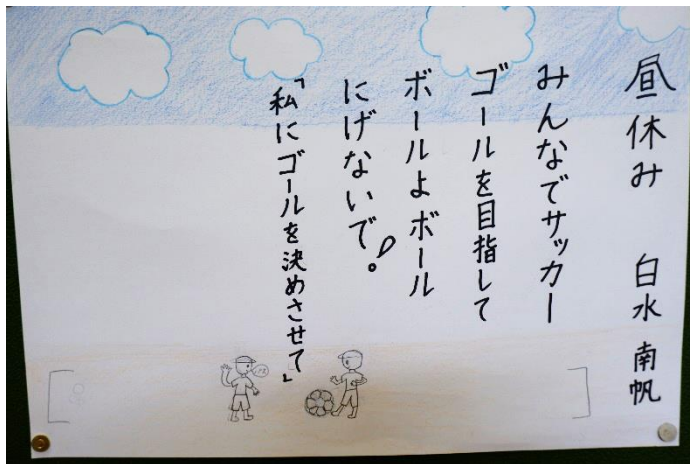 昼休み　白水 南帆
みんなでサッカー
ゴールを目指して
ボールよボール
にげないで!
「私にゴールを決めさせて」